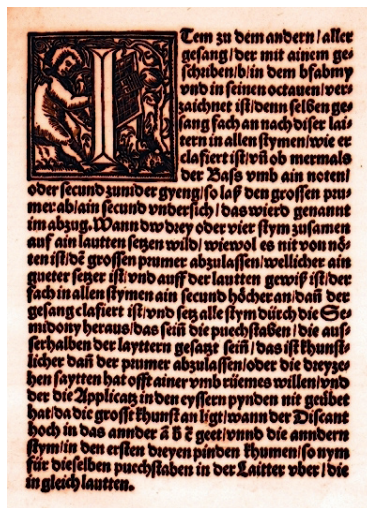 Item zu dem andern / aller
gesang / der mit ainem ge⸗
schriben / b / in dem bfabmy
vnd in seinen octauen / ver⸗
zaichnet ist / denn selben ge⸗
sang fach an nach diser lai⸗
tern in allen stymen / wie er
clafiert ist / vñ ob mermals
der Bass vmb ain noten /
oder secund zunider gyeng / so laß den grossen pru⸗
mer ab / ain secund vndersich / das wierd genannt
im abzug. Wann dw drey oder vier stym zusamen
auf ain lautten setzen wild / wiewol es nit von nö⸗
ten ist / dē grossen prumer abzulassen / wellicher ain
gueter setzer ist / vnd auff der lautten gewiß ist / der
fach in allen stymen ain secund höcher an / dañ der
gesang clafiert ist / vnd setz alle stym dürch die Se⸗
midony heraus / das seiñ die puechstaben / die aus⸗
serhalben der layttern gesatzt seiñ / das ist khunst⸗
licher dañ der prumer abzulassen / oder die dreyze⸗
hen saytten hat offt ainer vmb rüemes willen / vnd
der die Applicatz in den eyssern pynden nit geübet
hat / da die grosst khunst an ligt / wann der Discant
hoch in das annder ā b̄ c̄ geet / vnnd die anndern
stym / in den ersten dreyen pinden khumen / so nym
für dieselben puechstaben in der Laitter vber / die
in gleich lautten.